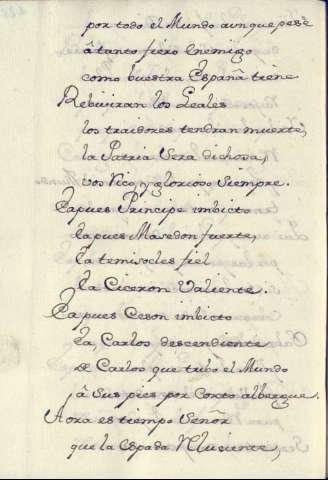 por todo el Mundo aunque pese
â tanto fiero Enemigo
como buestra España tiene
Rebiviran los Leales
los traidores tendran muerte,
la Patria sera dichosa,
vos Rico, y glorioso siempre.
Ea pues Principe imbicto
Ea pues Masedon fuerte,
Ea temisocles fiel
Ea Ciceron Valiente.
Ea pues Ceson imbicto
Ea, Carlos descendiente
de Carlos que tubo el Mundo
â sus pies por Corto albergue.
Aora es tiempo Señor
que la Espada Reluciente,